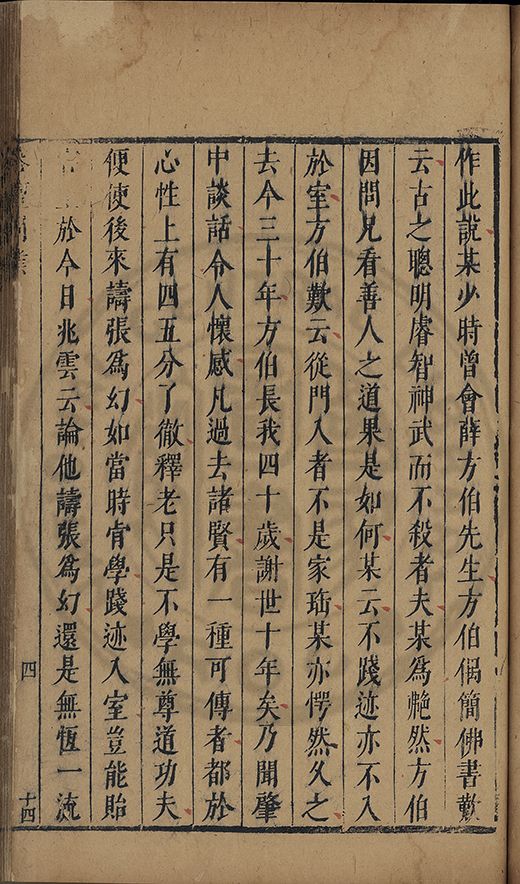 作此說某少時曾會薛方伯先生方伯偶簡佛書歎
云古之聰明睿智神武而不殺者夫某為艴然方伯
因問兄看善人之道果是如何某云不踐迹亦不入
於室方伯歎云從門入者不是家珤某亦愕然久之
去今三十年方伯長我四十歲謝世十年矣乃聞肇
中談話令人懷感凡過去諸賢有一種可傳者都於
心性上有四五分了徹釋老只是不學無尊道功夫
便使後來譸張為幻如當時肯學踐迹入室豈能貽
於今日兆雲云論他譸張為幻還是無恆一流
四
十四